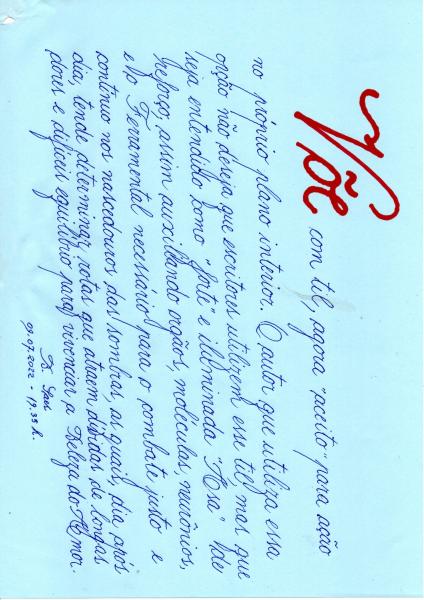 Võe com til, agora "aceito" para ação
no próprio plano interior. O autor que utiliza essa
opção não deseja que escritores utilizem esse til mas que
seja entendido como "forte" e iluminada "Asa" de
Reforço, assim auxiliando orgãos, moléculas, neurônios,
e no Ferramental necessário para o combate justo e
contínuo nos nascedouros das sombras, as quais, dia após
dia, tende determinar rotas que atraem dívidas de longas
dores e difíceis equilíbrio para vivenciar a Beleza do Amor.
09.07.2022 - 19,33 h.